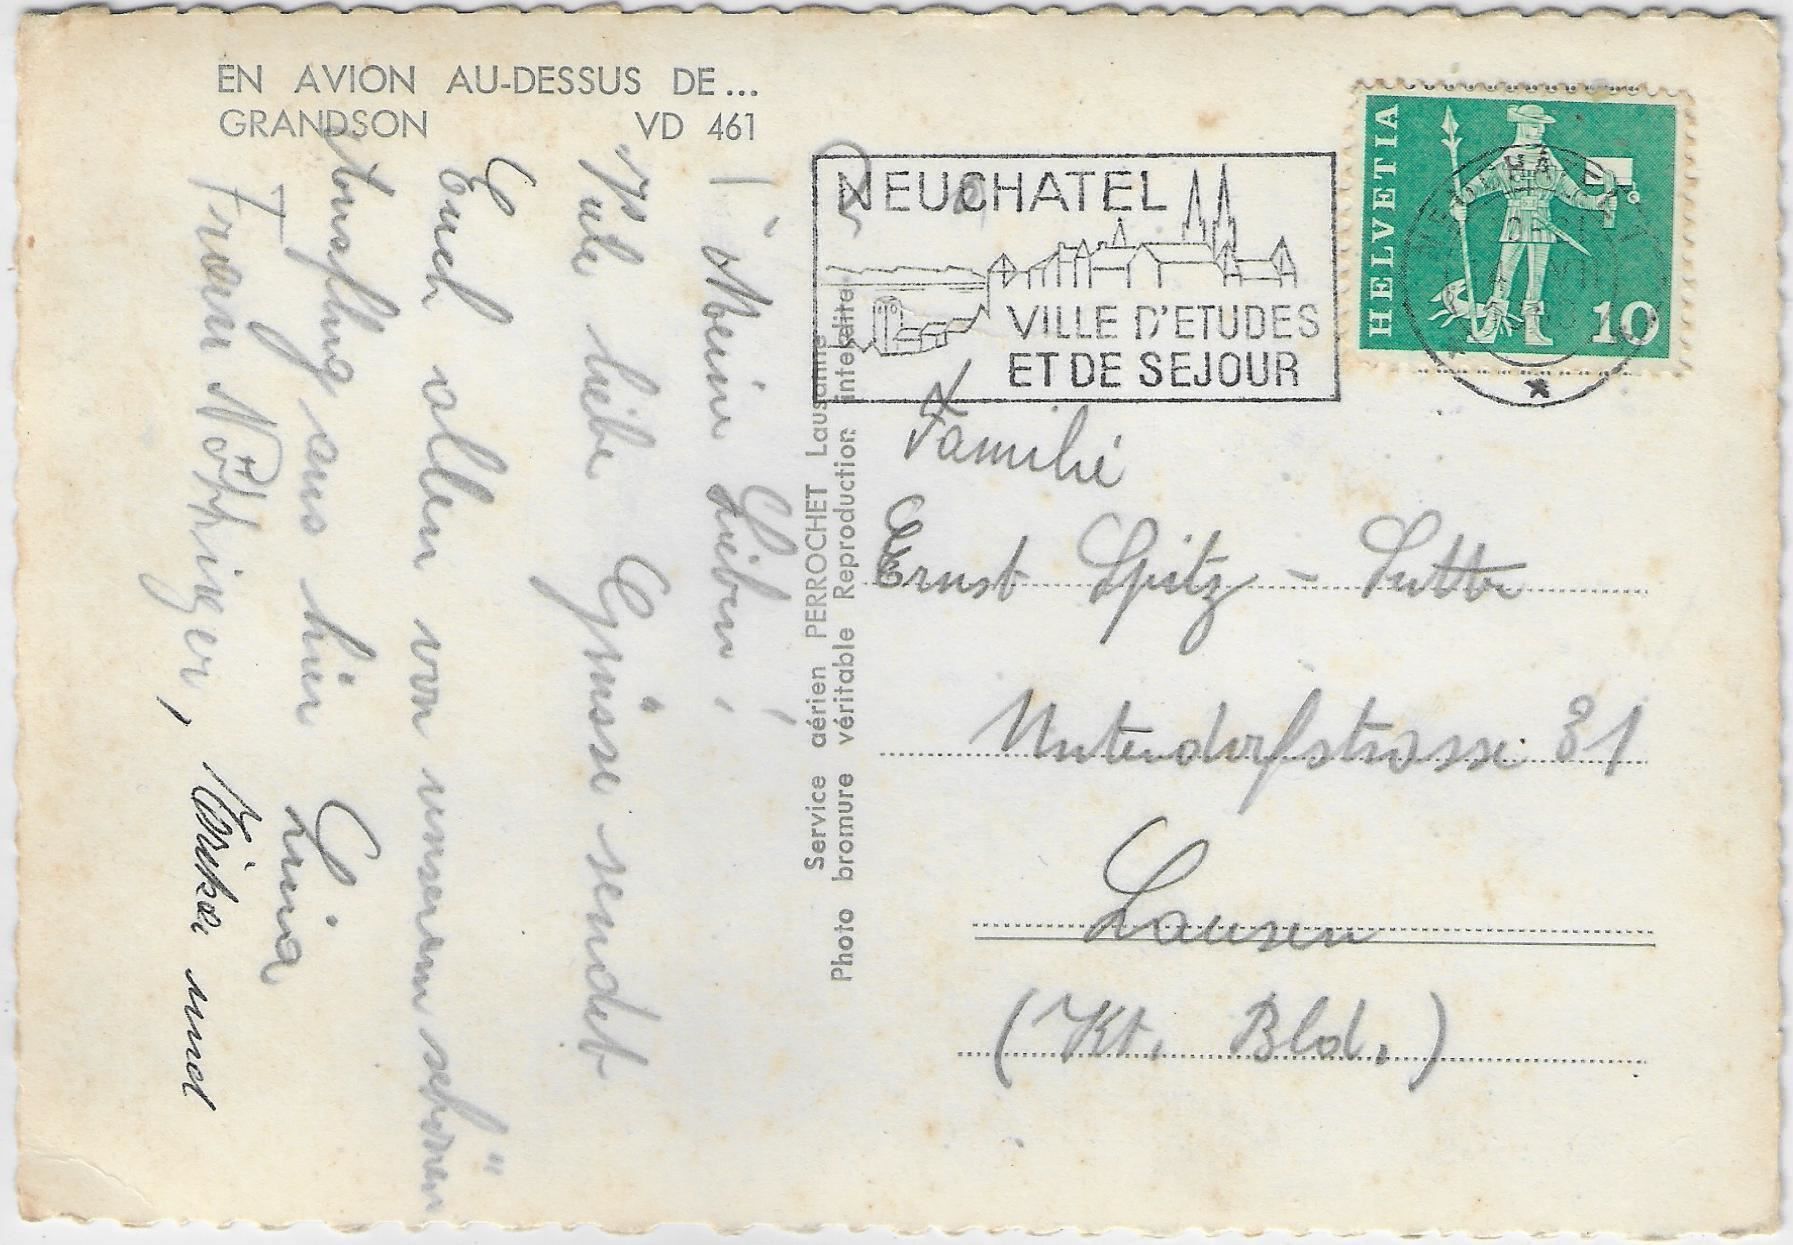 EN AVION AU-DESSUS DE...
GRANDSON VD 461
Meine Lieben!
Viele liebe Grüsse sendet
Euch allen von unserem schönen
Ausflug aus hier
Lina
Frau Nöpfinger, und
Service aérien PERROCHET Lausanne
Photo bromure véritable Reproduction interdite
NEUCHATEL
VILLE D'ETUDES
ET DE SEJOUR
HELVETIA
10
Familie
Ernst Spitz - Sutter
Unterdorfstrasse 31
Lausen
(Kt. Bld.)